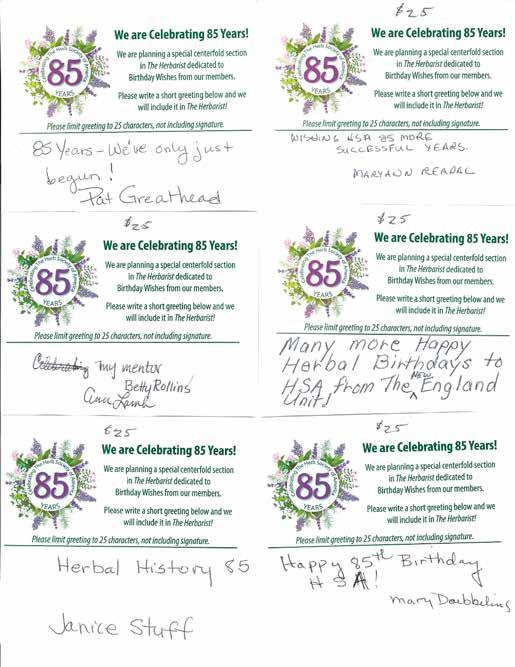 We are Celebrating 85 Years!
Celebrating The Herb Society of America
85
YEARS
We are planning a special centerfold section
in The Herbarist dedicated to
Birthday Wishes from our members.
Please write a short greeting below and we
will include it in The Herbarist!
Please limit greeting to 25 characters, not including signature.
85 Years – We've only just
begun!
Pat Greathead
$25
We are Celebrating 85 Years!
Celebrating The Herb Society of America
85
YEARS
We are planning a special centerfold section
in The Herbarist dedicated to
Birthday Wishes from our members.
Please write a short greeting below and we
will include it in The Herbarist!
Please limit greeting to 25 characters, not including signature.
WISHING HSA 85 MORE
SUCCESSFUL YEARS.
MARYANN READAL
$25
We are Celebrating 85 Years!
Celebrating The Herb Society of America
85
YEARS
We are planning a special centerfold section
in The Herbarist dedicated to
Birthday Wishes from our members.
Please write a short greeting below and we
will include it in The Herbarist!
Please limit greeting to 25 characters, not including signature.
Celebrating my mentor
Betty Rollins
$25
We are Celebrating 85 Years!
Celebrating The Herb Society of America
85
YEARS
We are planning a special centerfold section
in The Herbarist dedicated to
Birthday Wishes from our members.
Please write a short greeting below and we
will include it in The Herbarist!
Please limit greeting to 25 characters, not including signature.
Many more Happy
Herbal Birthdays to
HSA from The New England
Unit!
$25
We are Celebrating 85 Years!
Celebrating The Herb Society of America
85
YEARS
We are planning a special centerfold section
in The Herbarist dedicated to
Birthday Wishes from our members.
Please write a short greeting below and we
will include it in The Herbarist!
Please limit greeting to 25 characters, not including signature.
Herbal History 85
Janice Stuff
$25
We are Celebrating 85 Years!
Celebrating The Herb Society of America
85
YEARS
We are planning a special centerfold section
in The Herbarist dedicated to
Birthday Wishes from our members.
Please write a short greeting below and we
will include it in The Herbarist!
Please limit greeting to 25 characters, not including signature.
Happy 85th Birthday
HSA!
Mary Doebbeling